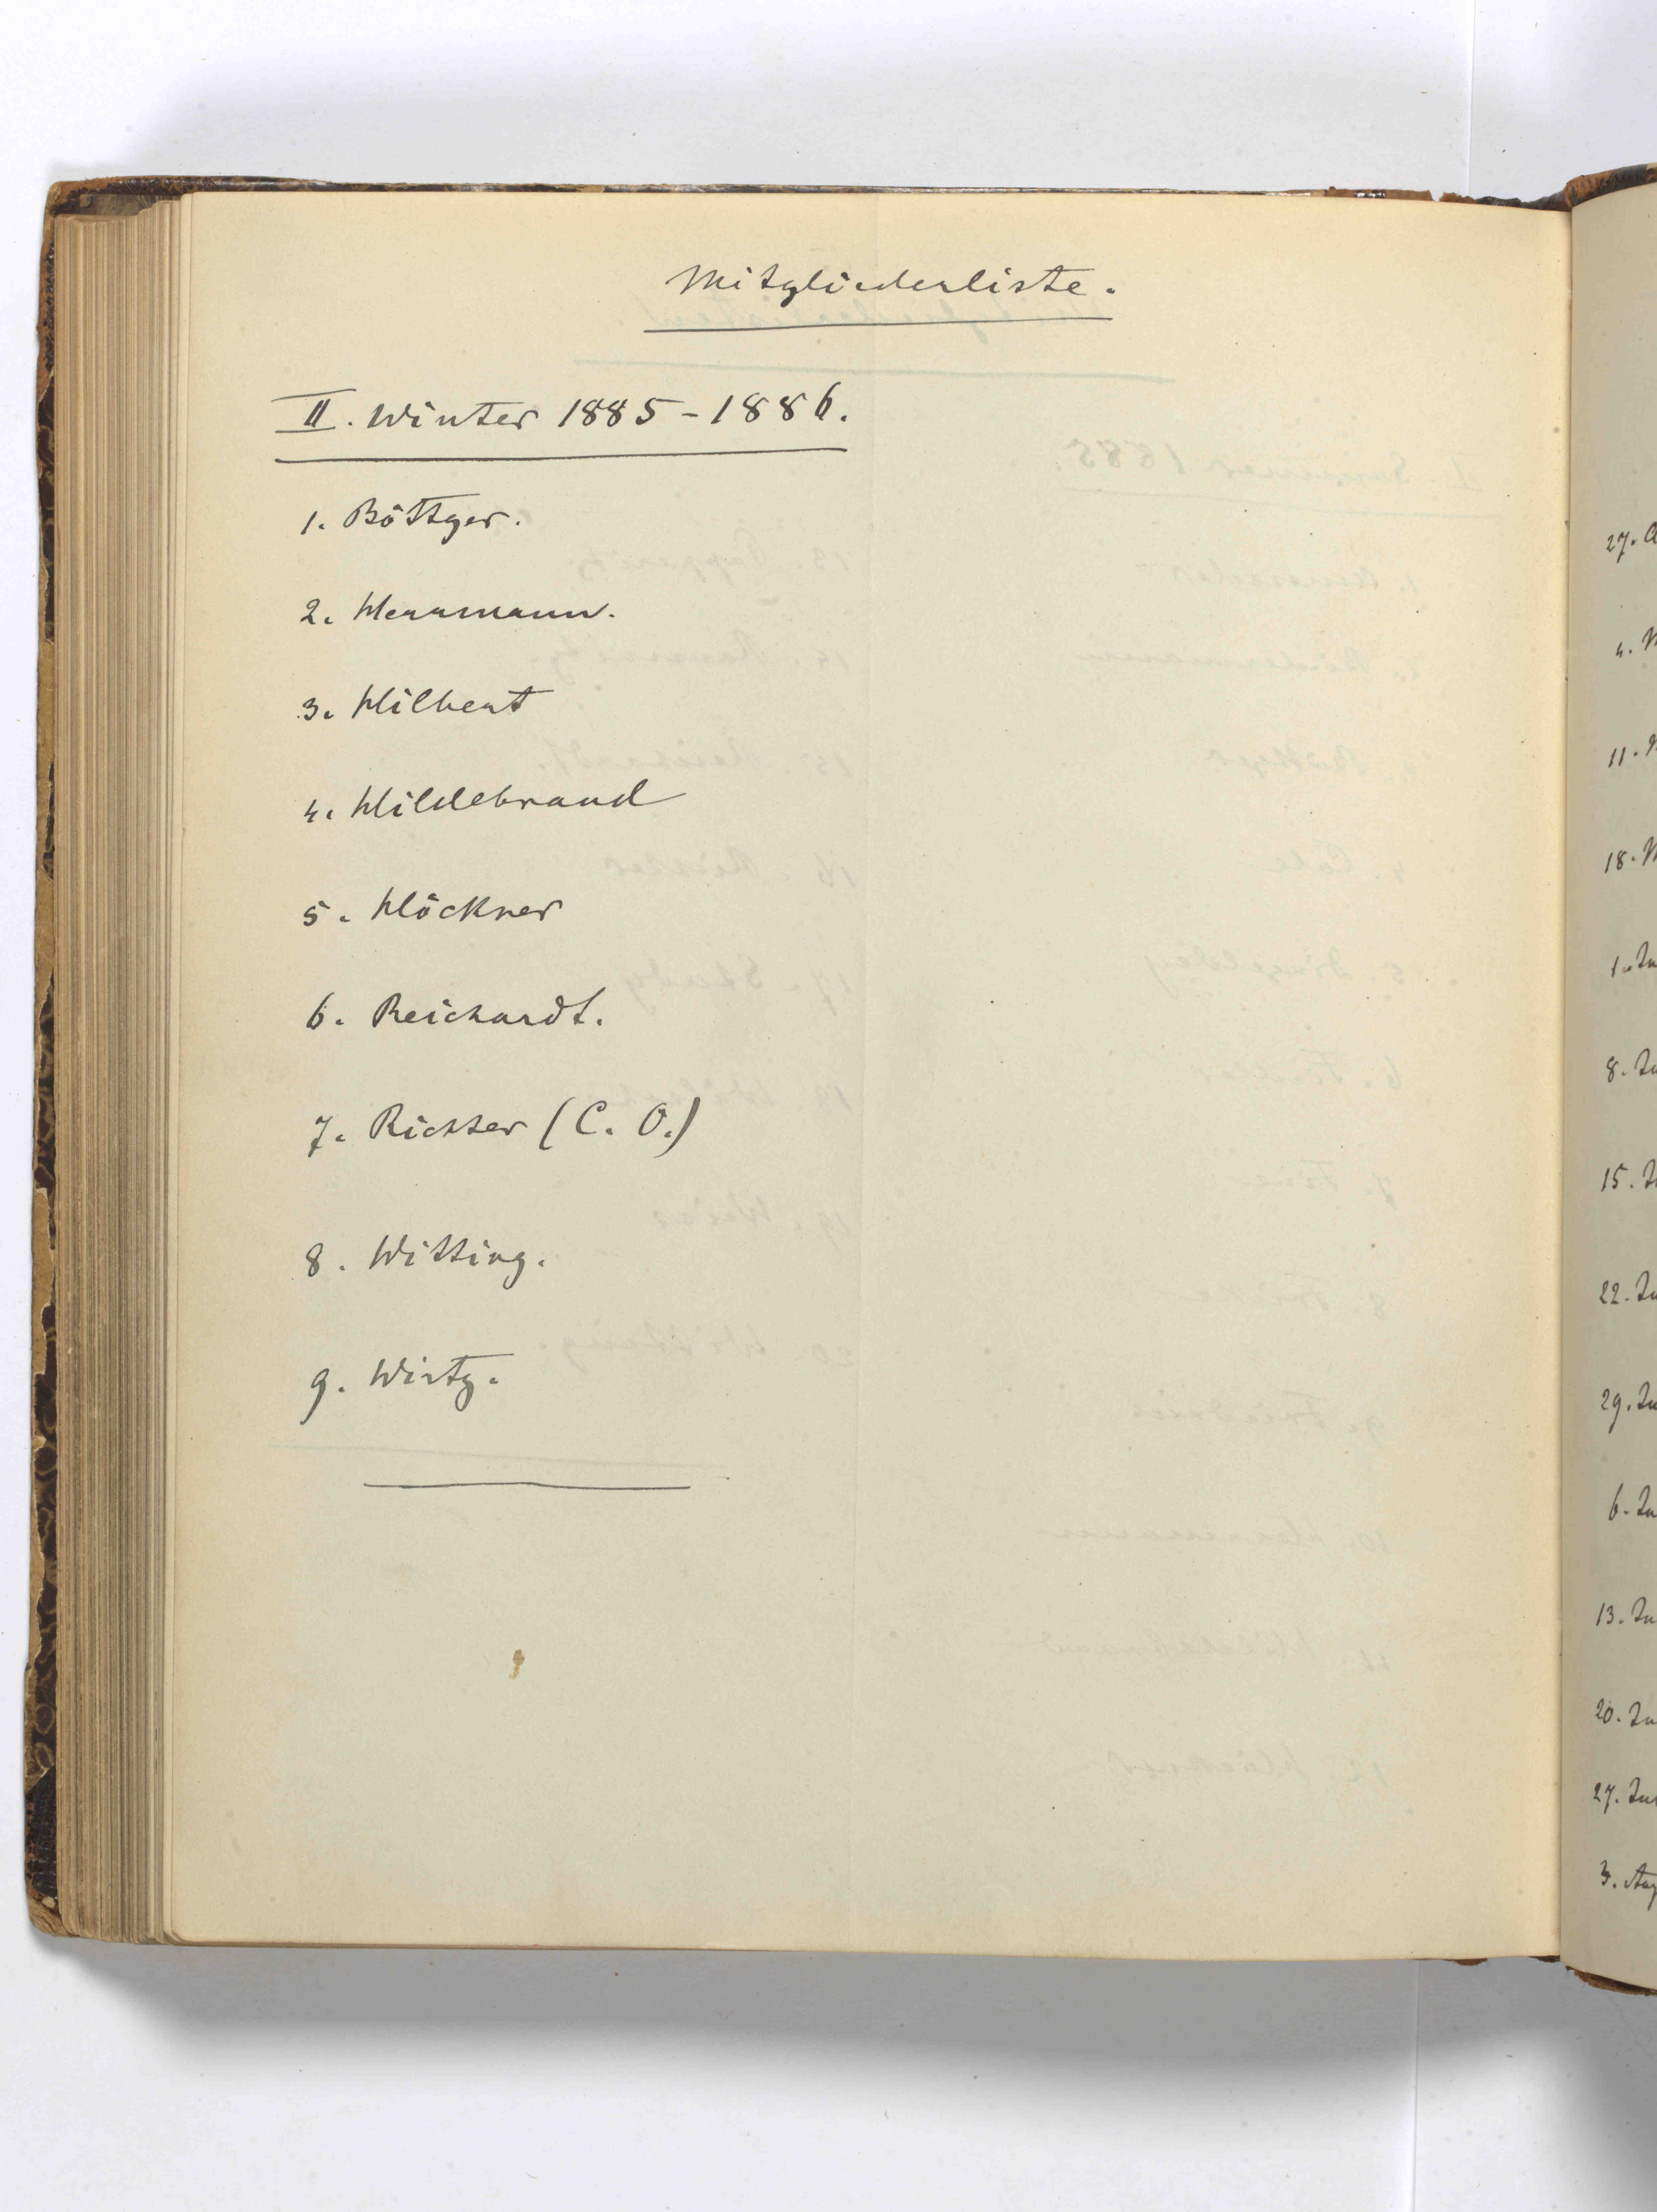 Mitgliederliste.
II. Winter 1885-1886.
1. Böttger.
2. Herrmann.
3. Hilbert
4. Hildebrand
5. Höckner
6. Reichardt.
7. Richter (C. O.)
8. Witting.
9. Wirtz.
27.
4.
11.
18.
1.
8.
15.
22.
29.
6.
13.
20.
27.
3. Aug